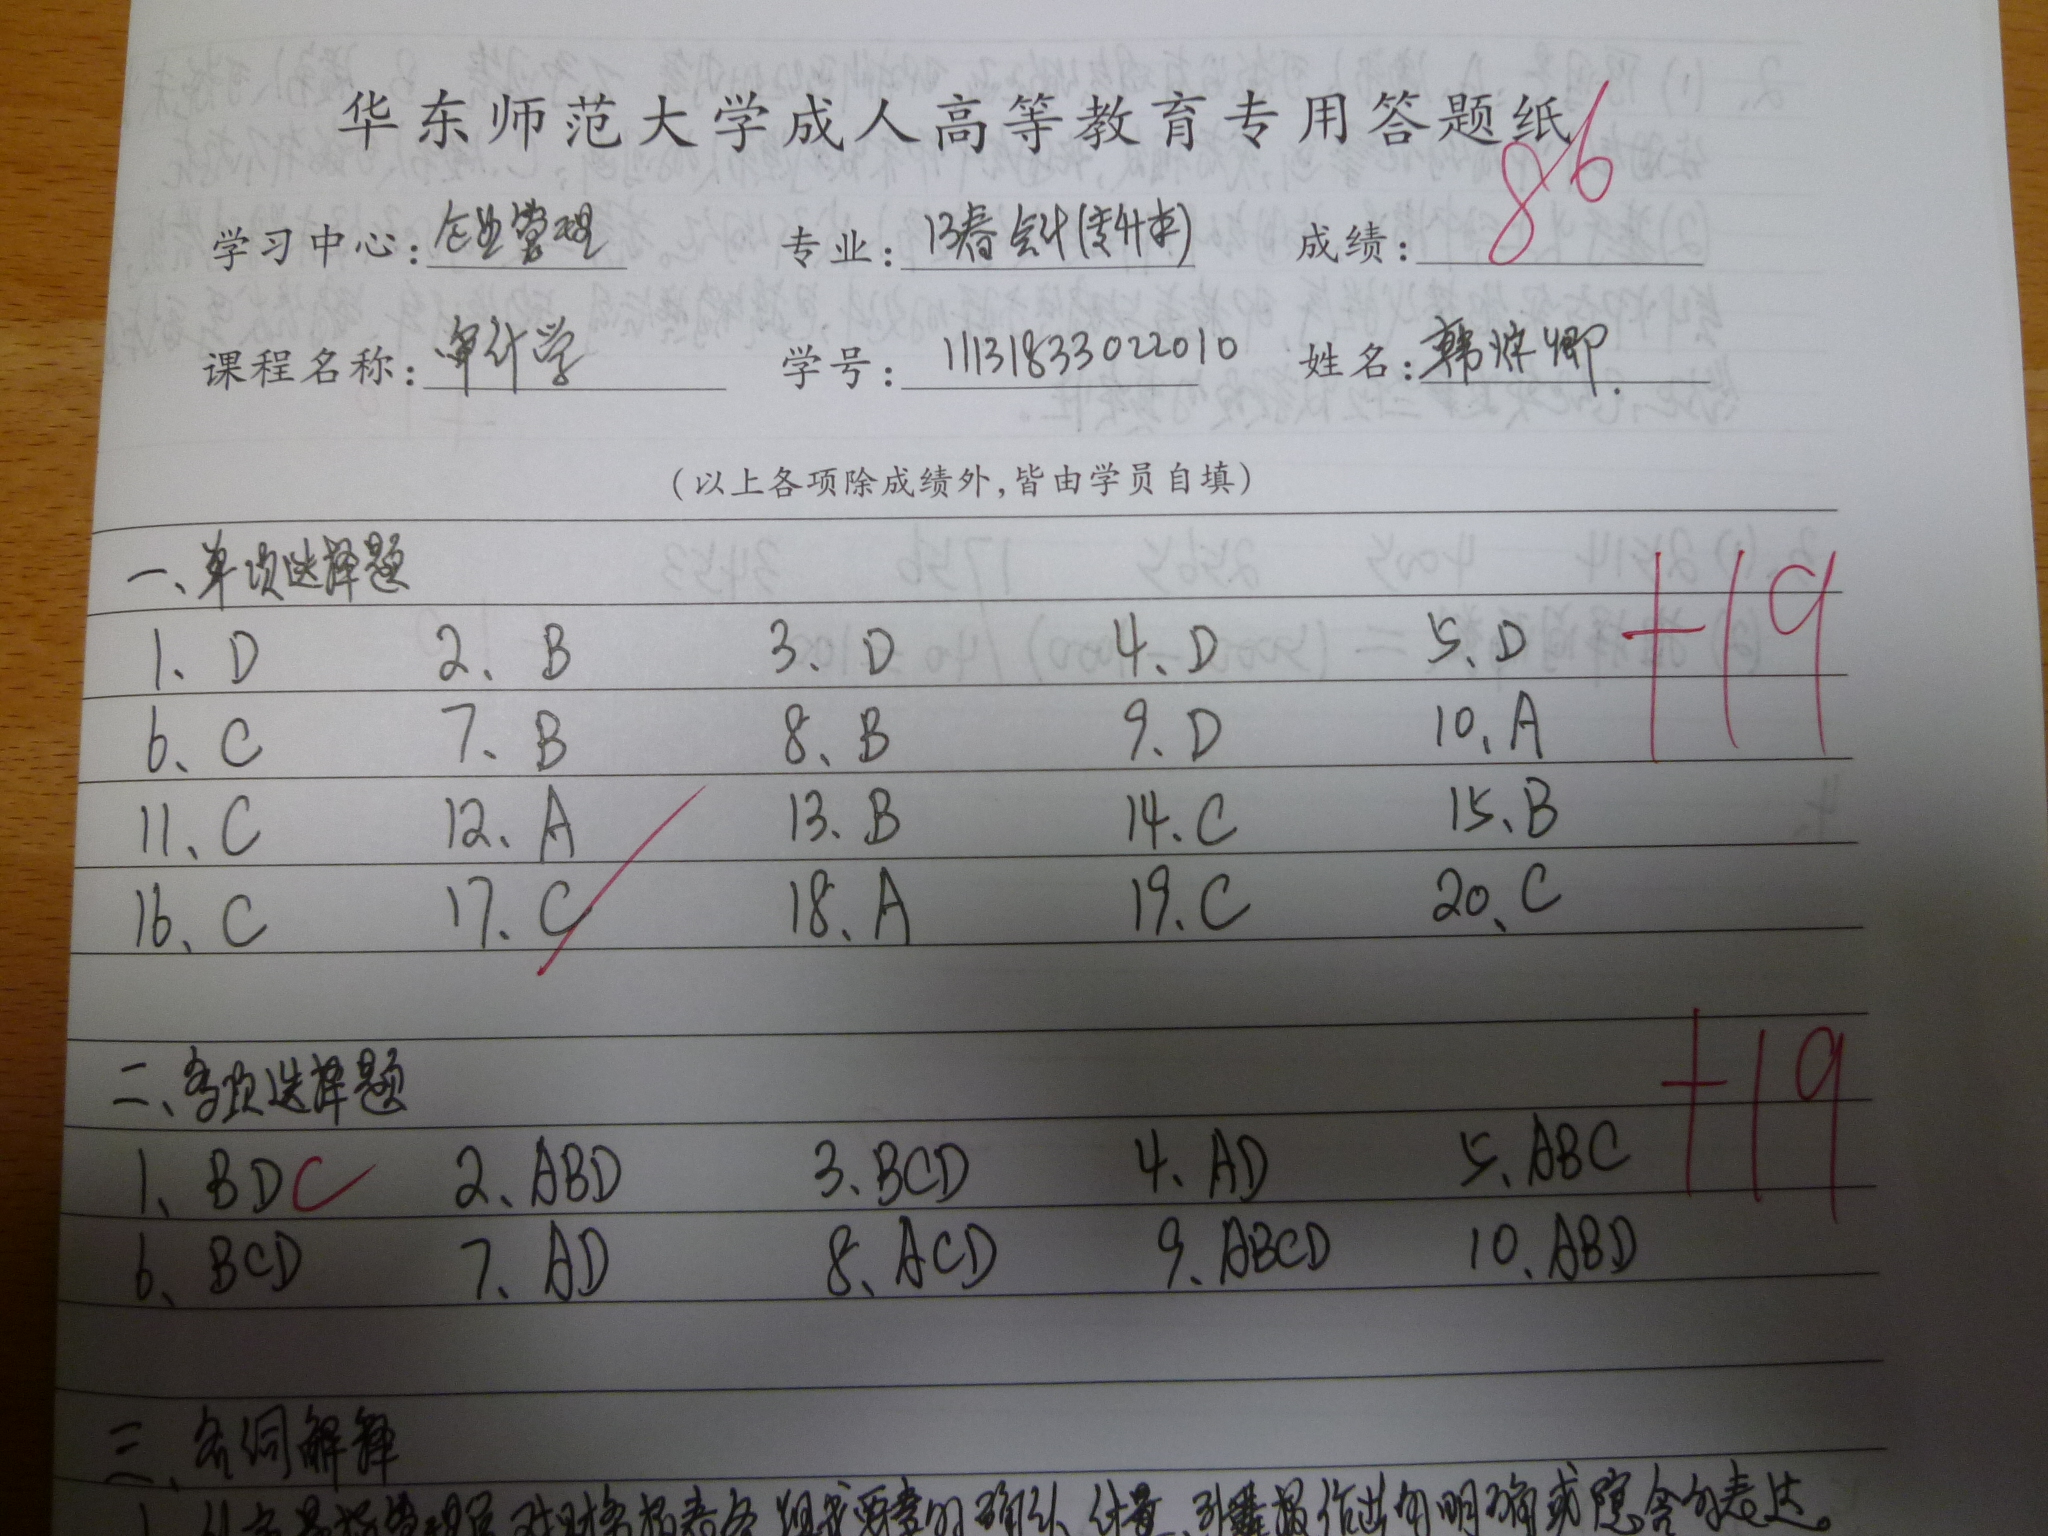 华东师范大学成人高等教育专用答题纸
学习中心：企业管理 专业：13春会计(专升本) 成绩：86
课程名称：审计学 学号：11131833022010 姓名：韩 卿.
(以上各项除成绩外,皆由学员自填)
一、单项选择题 +19
1、D 2、B 3、D 4、D 5、D
6、C 7、B 8、B 9、D 10、A
11、C 12、A 13、B 14、C 15、B
16、C 17、C 18、A 19、C 20、C
二、多项选择题 +19
1、BDC 2、ABD 3、BCD 4、AD 5、ABC
6、BCD 7、AD 8、ACD 9、ABCD 10、ABD
三、名词解释
1、认定是指管理层对财务报表各组成要素的确认、计量、列报作出的明确或隐含的表达。